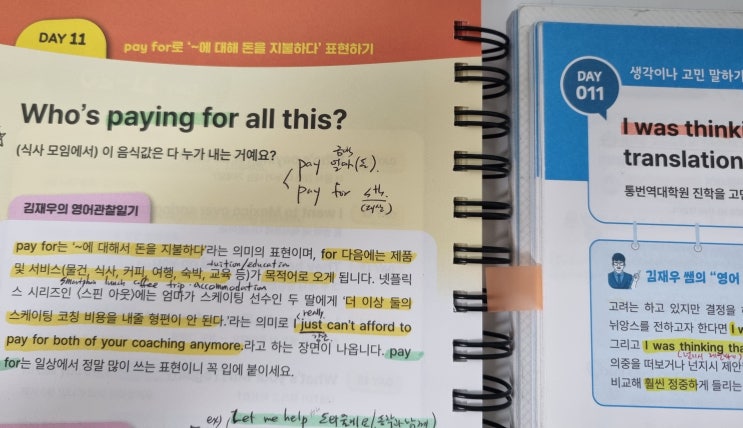 DAY 11
pay for로 '~에 대해 돈을 지불하다' 표현하기
Who's paying for all this?
(식사 모임에서) 이 음식값은 다 누가 내는 거예요?
pay 얼마(돈).
pay for sth
(대상)
김재우의 영어관찰일기
pay for는 '~에 대해서 돈을 지불하다'라는 의미의 표현이며, for 다음에는 제품
tuition/education
및 서비스(물건, 식사, 커피, 여행, 숙박, 교육 등)가 목적어로 오게 됩니다. 넷플릭
lunch coffee trip accommodation
스 시리즈인 <스핀 아웃>에는 엄마가 스케이팅 선수인 두 딸에게 '더 이상 둘의
스케이팅 코칭 비용을 내줄 형편이 안 된다.'라는 의미로 I just can't afford to
really
pay for both of your coaching anymore.라고 하는 장면이 나옵니다. pay
for는 일상에서 정말 많이 쓰는 표현이니 꼭 입에 붙이세요.
ex) Let me help
DAY
011
생각이나 고민 말하기
I was thinki
translation
통번역대학원 진학을 고민
김재우 쌤의 "영어
고려는 하고 있지만 결정을
뉘앙스를 전하고자 한다면 I w
그리고 I was thinking tha
의중을 떠보거나 넌지시 제안
비교해 훨씬 정중하게 들리는